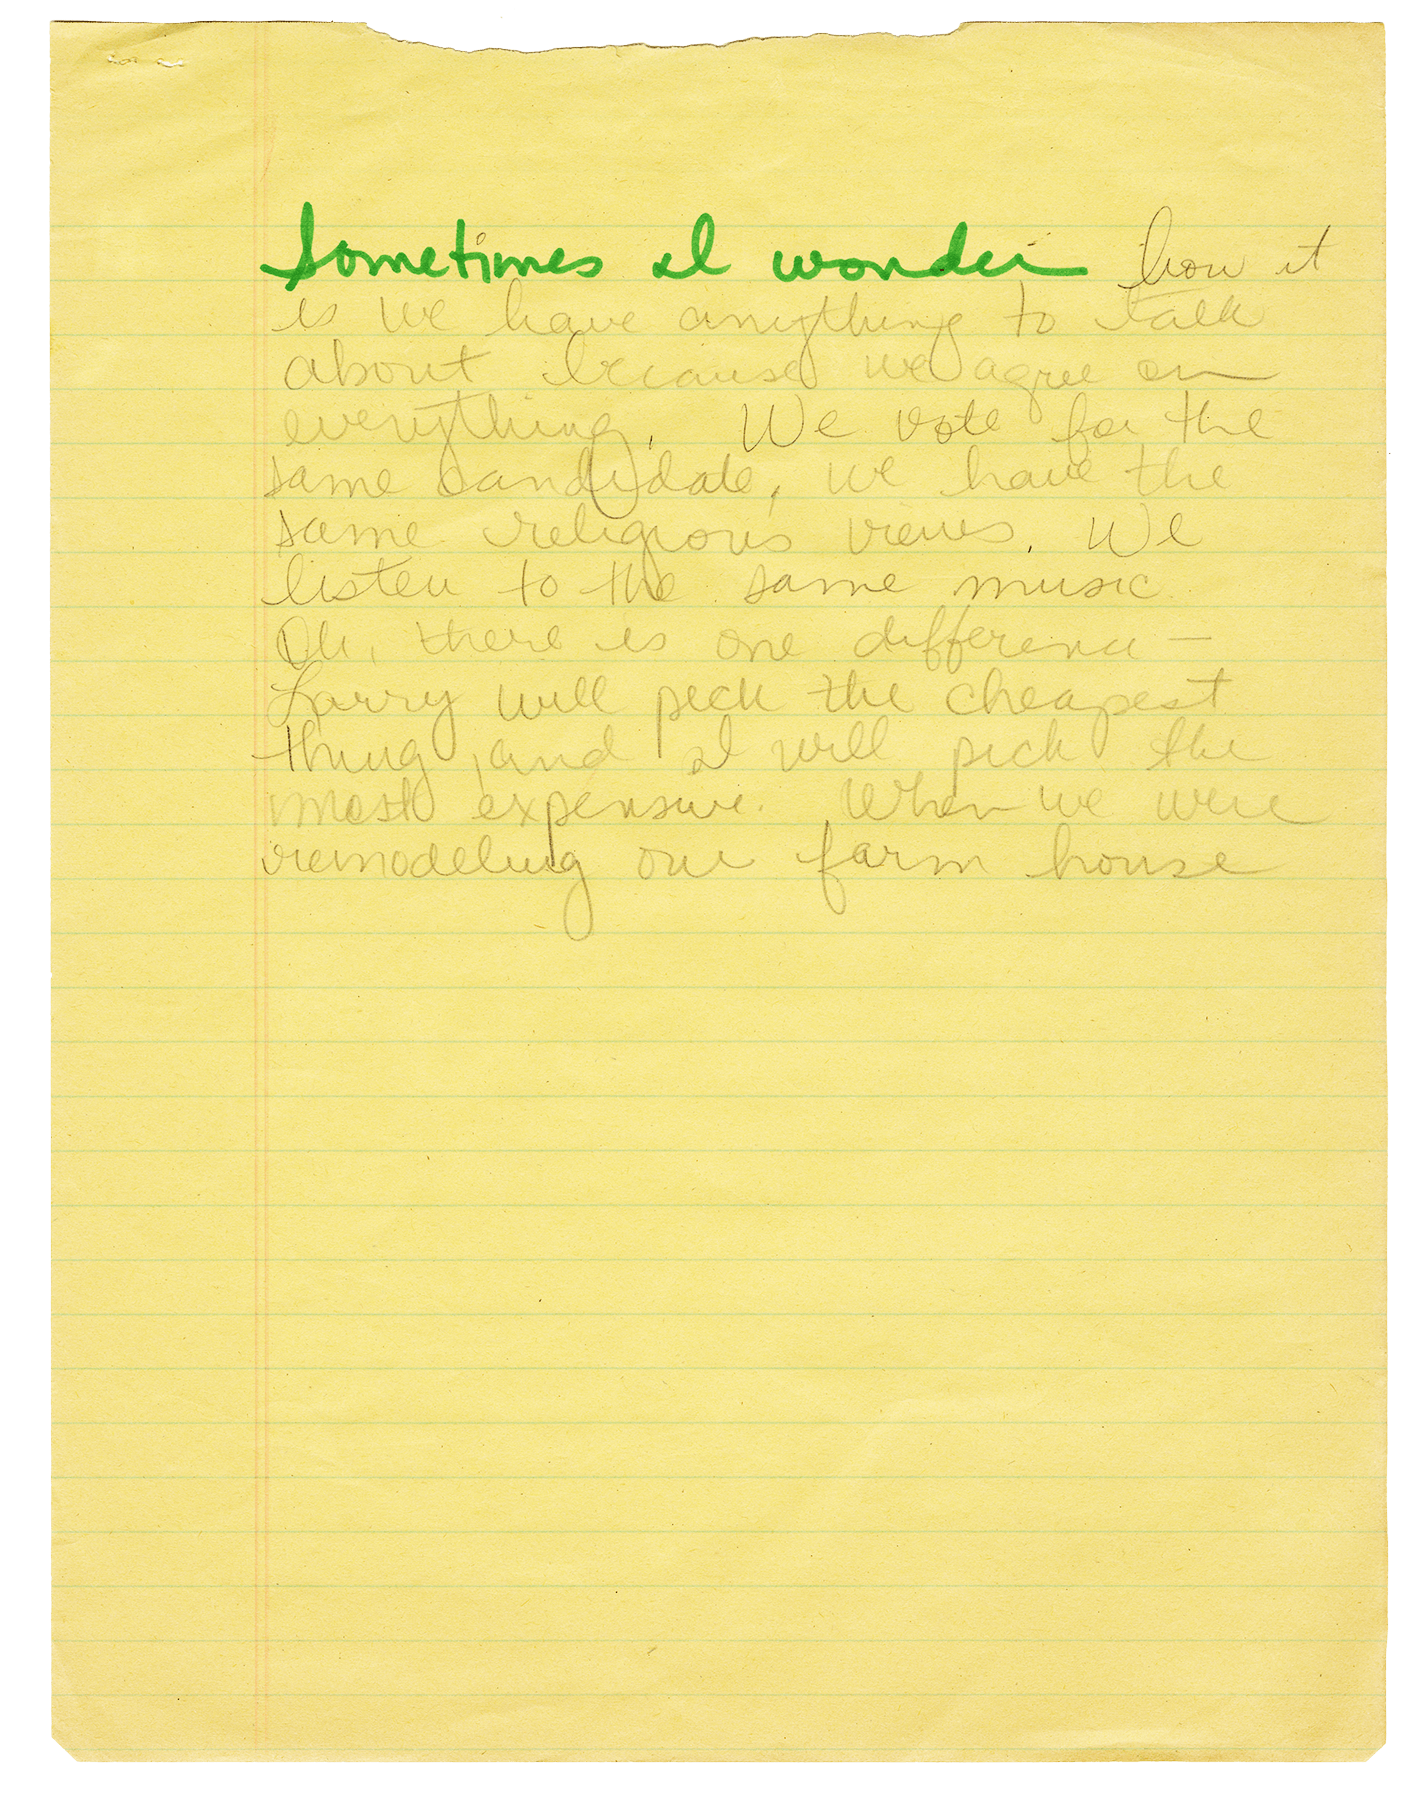 Sometimes I wonder how it
is we have anything to talk
about because we agree on
everything. We vote for the
same candidate, we have the
same religious views. We
listen to the same music
Oh, there is one difference —
Larry will pick the cheapest
thing, and I will pick the
most expensive. When we were
remodeling our farm house